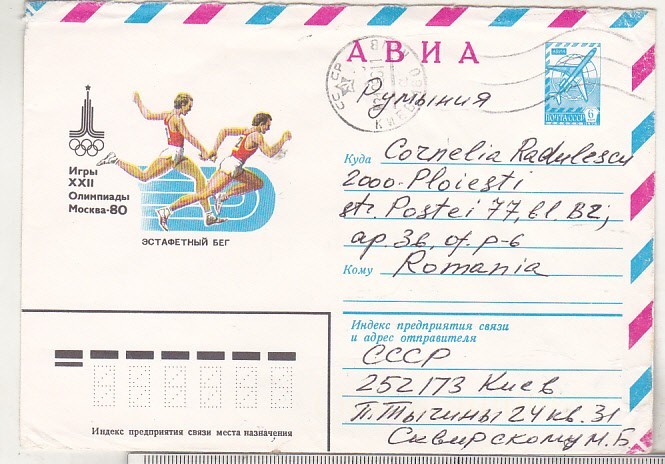 АВИА
СССР
КИЕВ
АВИА
ПОЧТА СССР 6
к
Румыния
Игры
XXII
Олимпиады
Москва-80
ЭСТАФЕТНЫЙ БЕГ
Куда Cornelia Radulescu
2000-Ploiesti
str. Postei 77, bl. B2,
ap. 36, of. p-6
Кому Romania
Индекс предприятия связи
и адрес отправителя
СССР
252173 Киев
П.Тычины 24 кв. 31
Сивирскому М.Б
Индекс предприятия связи места назначения